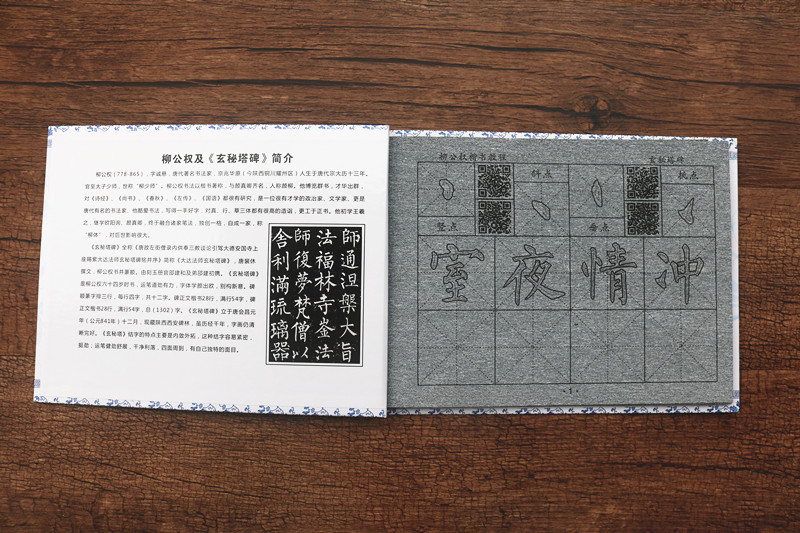 柳公权及《玄秘塔碑》简介
柳公权（778-865），字诚悬，唐代著名书法家，京兆华原（今陕西铜川耀州区）人生于唐代宗大历十三年。
官至太子少师，世称“柳少师”。柳公权书法以楷书著称，与颜真卿齐名，人称颜柳。他博览群书，才华出群，
对《诗经》、《尚书》、《春秋》、《左传》、《国语》都很有研究，是一位很有才学的政治家、文学家，更是
唐代有名的书法家，他酷爱书法，写得一手好字，对真、行、草三体都有很高的造诣，更工于正书。他初学王羲
之，继学欧阳询、颜真卿，终于融合诸家笔法，独创一格，自成一家，称
“柳体”，对后世影响很大。
《玄秘塔碑》全称《唐故左街僧录内供奉三教谈论引驾大德安国寺上
座赐紫大达法师玄秘塔碑铭并序》简称《大达法师玄秘塔碑》，唐裴休
撰文，柳公权书并篆额。由刻玉册官邵建和及弟邵建初镌。《玄秘塔碑》
是柳公权六十四岁时书，运笔遒劲有力，字体学颜出欧，别构新意。碑
额篆字按三行，每行四字，共十二字。碑正文楷书28行，满行54字，碑
正文楷书28行，满行54字，总（1302）字。《玄秘塔碑》立于唐会昌元
年（公元841年）十二月，现藏陕西西安碑林，虽历经千年，字画仍清
晰完好。《玄秘塔碑》结字的特点主要是内敛外拓，这种结字容易紧密，
挺劲；运笔健劲舒展，干净利落，四面周到，有自己独特的面目。
師通涅槃大旨
法福林寺崟法
師復夢梵僧以
舍利滿琉璃器
柳公权楷书教程
玄秘塔碑
斜点
挑点
竖点
垂点
室夜情冲
·1·